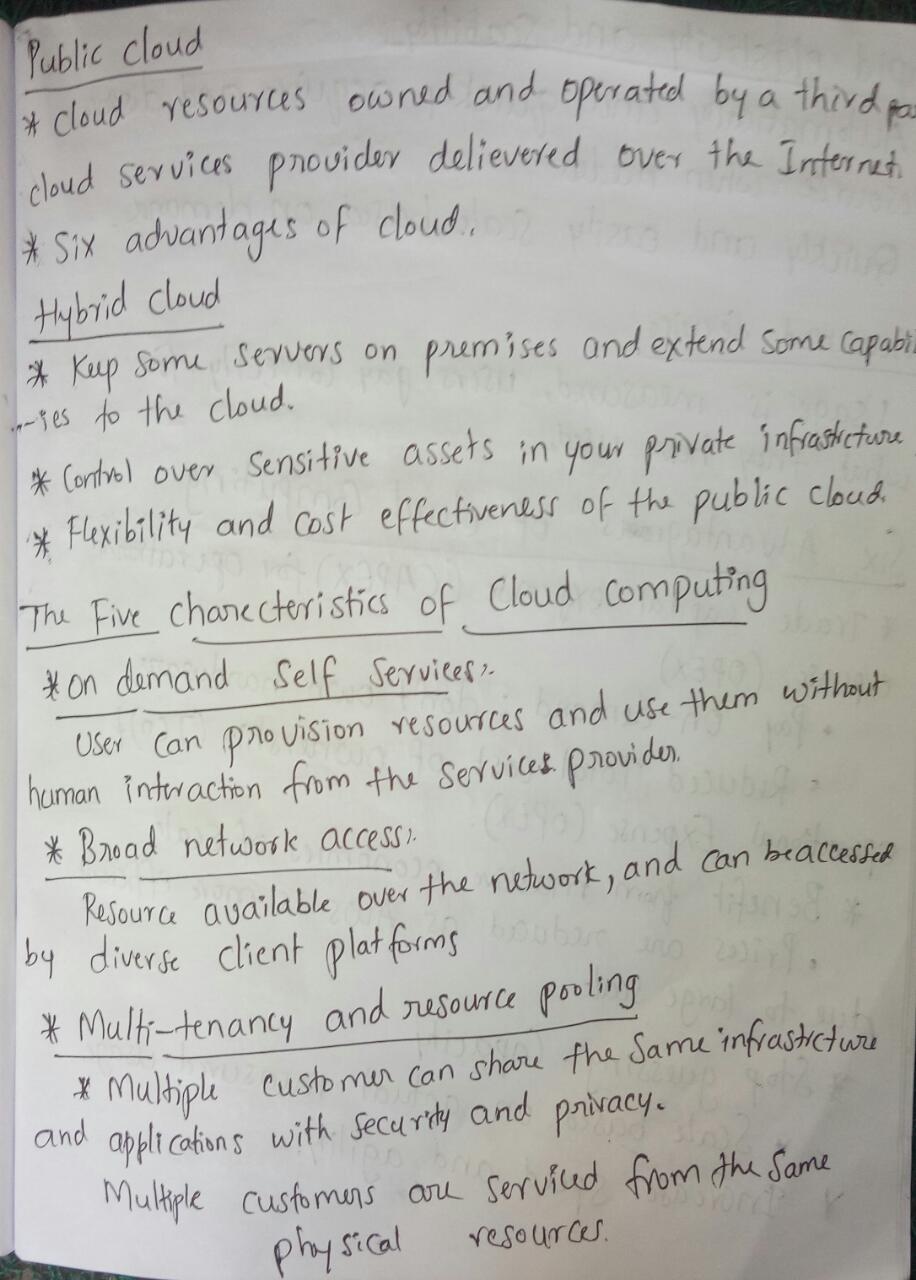 Public Cloud
* Cloud resources owned and operated by a third pa
cloud services provider delievered over the Internet.
* Six advantages of cloud.
Hybrid Cloud
* Keep Some servers on premises and extend some capabi
-ies to the cloud.
* Control over sensitive assets in your private infrastrcture
* Flexibility and cost effectiveness of the public cloud.
The Five charecteristics of Cloud computing
* on demand self services:-
User can provision resources and use them without
human interaction from the services provider.
* Broad network access:-
Resource available over the network, and can be accessed
by diverse client platforms
* Multi-tenancy and resource pooling
* Multiple customer can share the same infrastrcture
and applications with security and privacy.
Multiple customers are serviced from the same
physical resources.